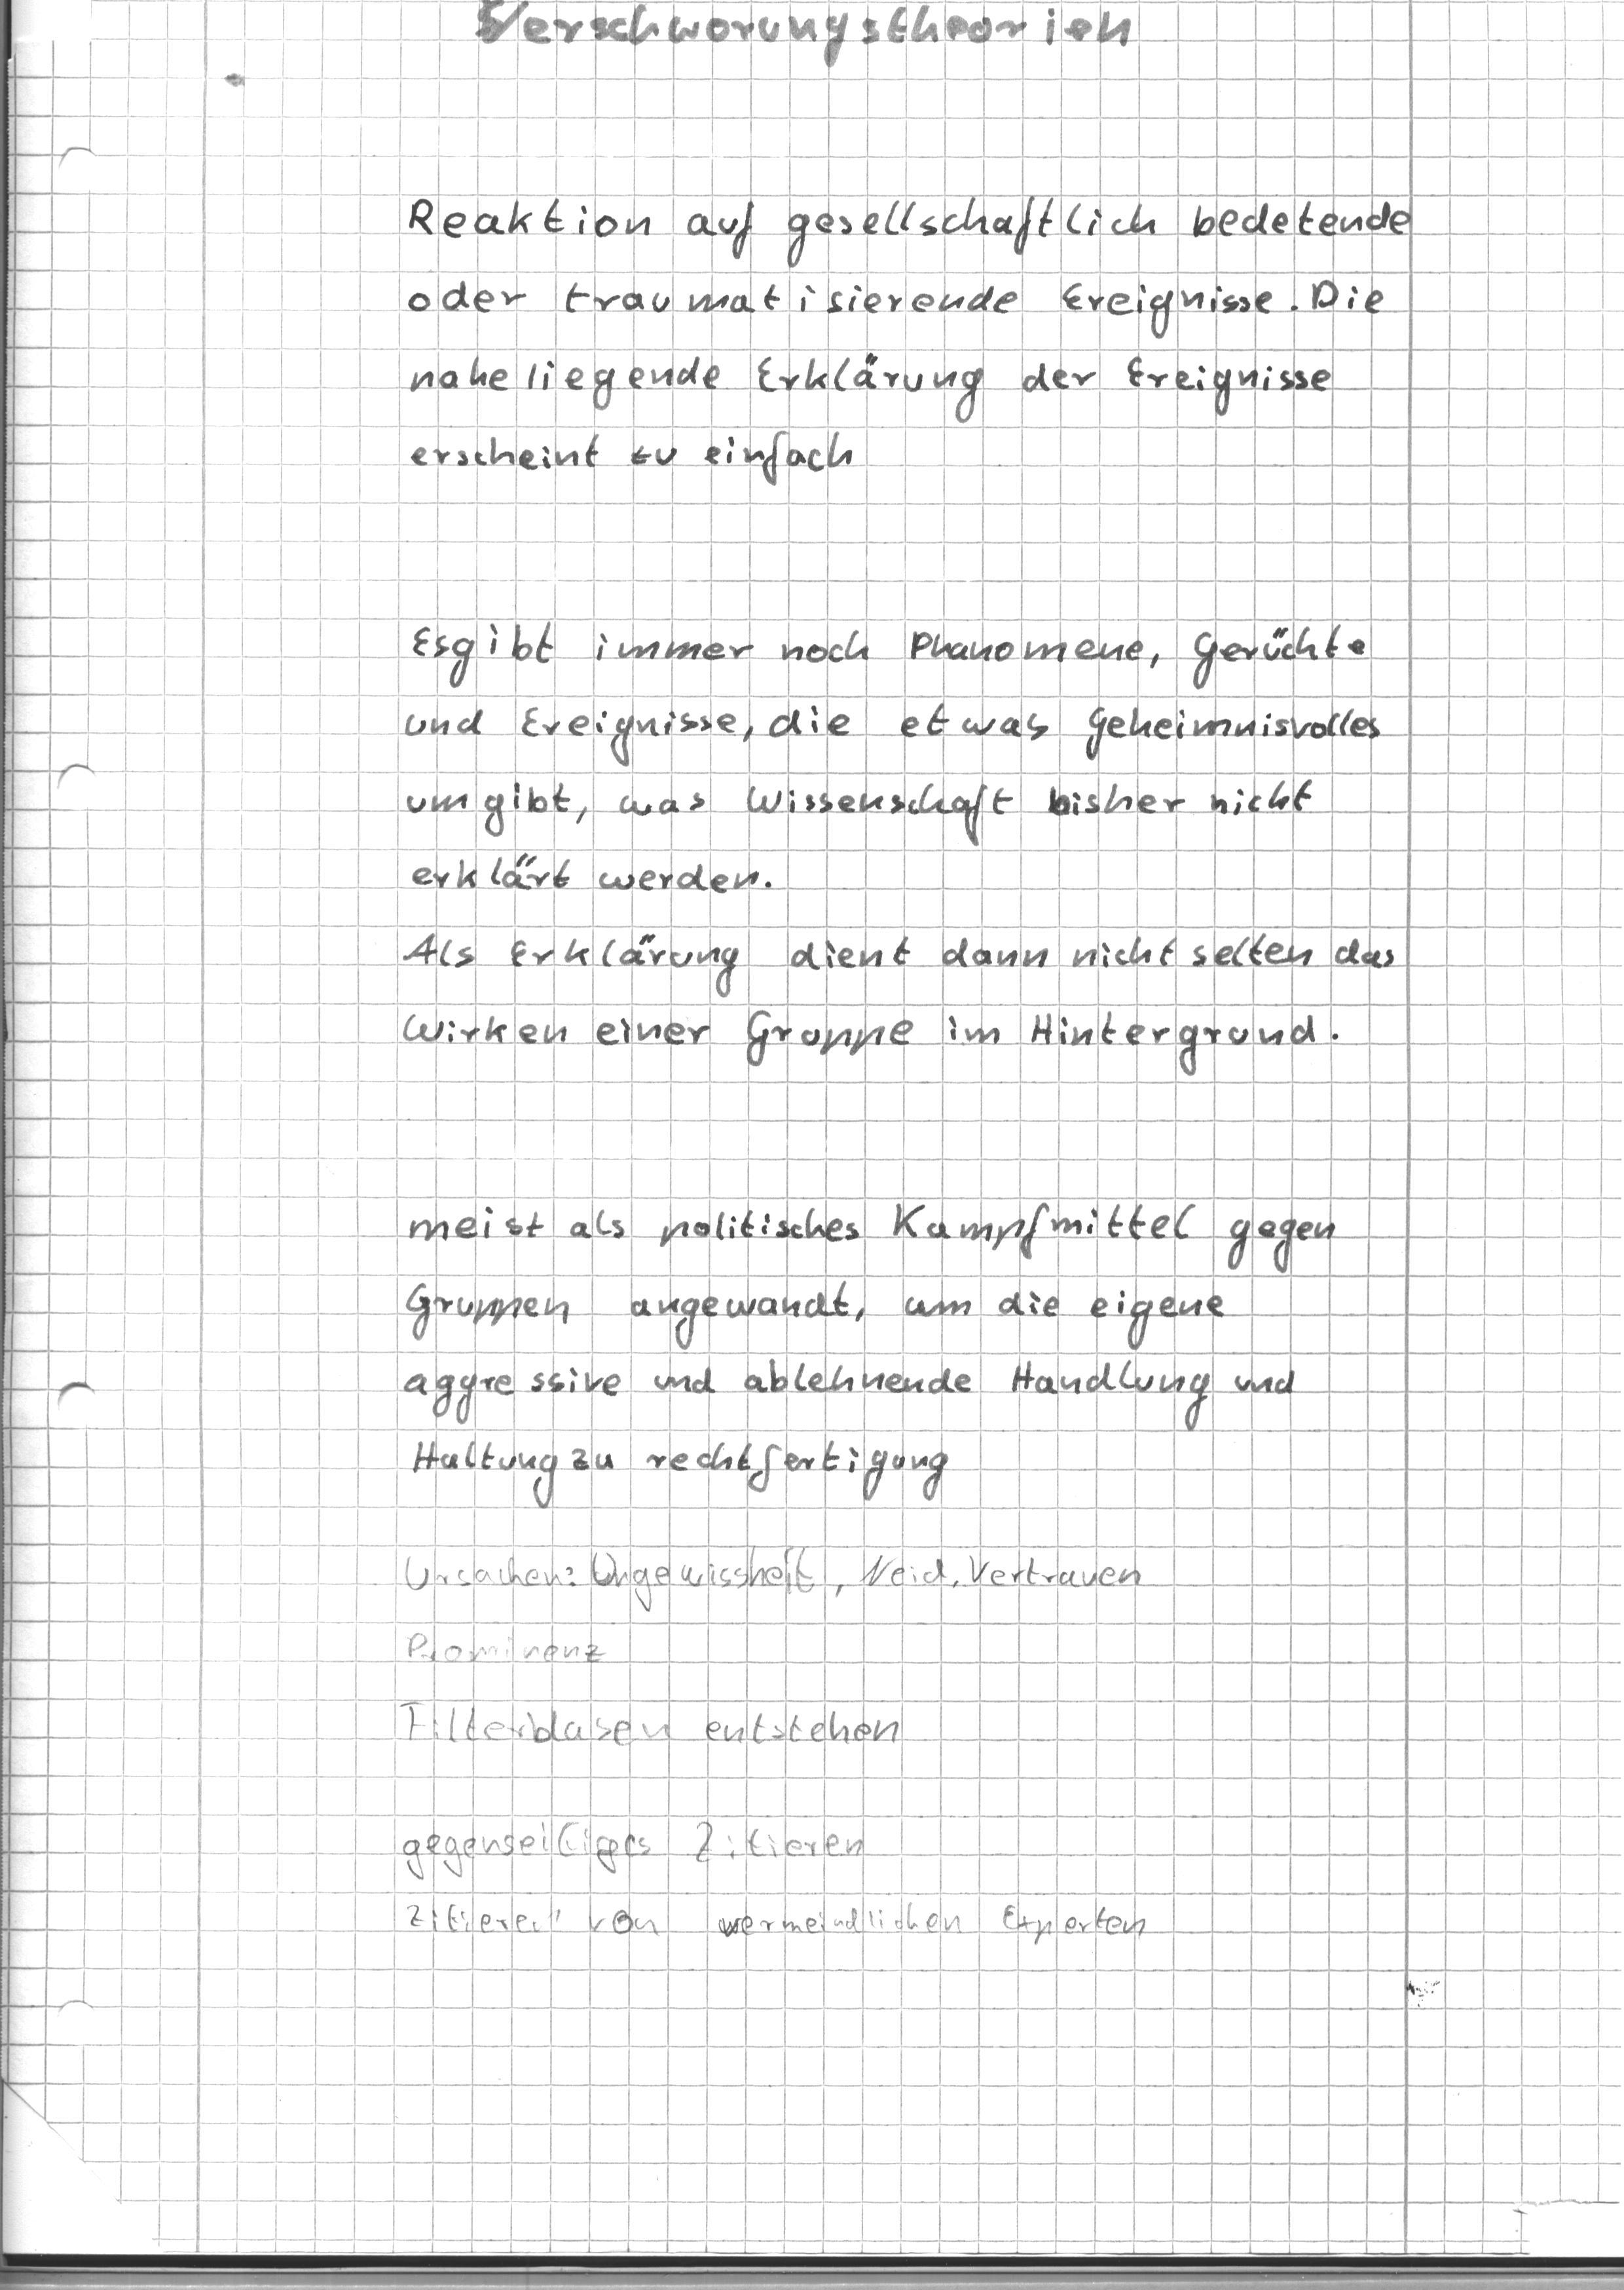 Verschworungstheorien
Reaktion auf gesellschaftlich bedetende
oder traumatisierende Ereignisse. Die
naheliegende Erklärung der Ereignisse
erscheint zu einfach
Esgibt immer noch Phanomene, Gerüchte
und Ereignisse, die etwas Geheimnisvolles
umgibt, was Wissenschaft bisher nicht
erklärt werden.
Als Erklärung dient dann nicht selten das
Wirken einer Gruppe im Hintergrund.
meist als politisches Kampfmittel gegen
Gruppen angewandt, um die eigene
aggressive und ablehnende Handlung und
Haltung zu rechtfertigung
Ursachen: Ungewissheit, Neid, Vertrauen
Prominenz
Filterblasen entstehen
gegenseitiges Zitieren
Zitieren von vermeindlichen Experten